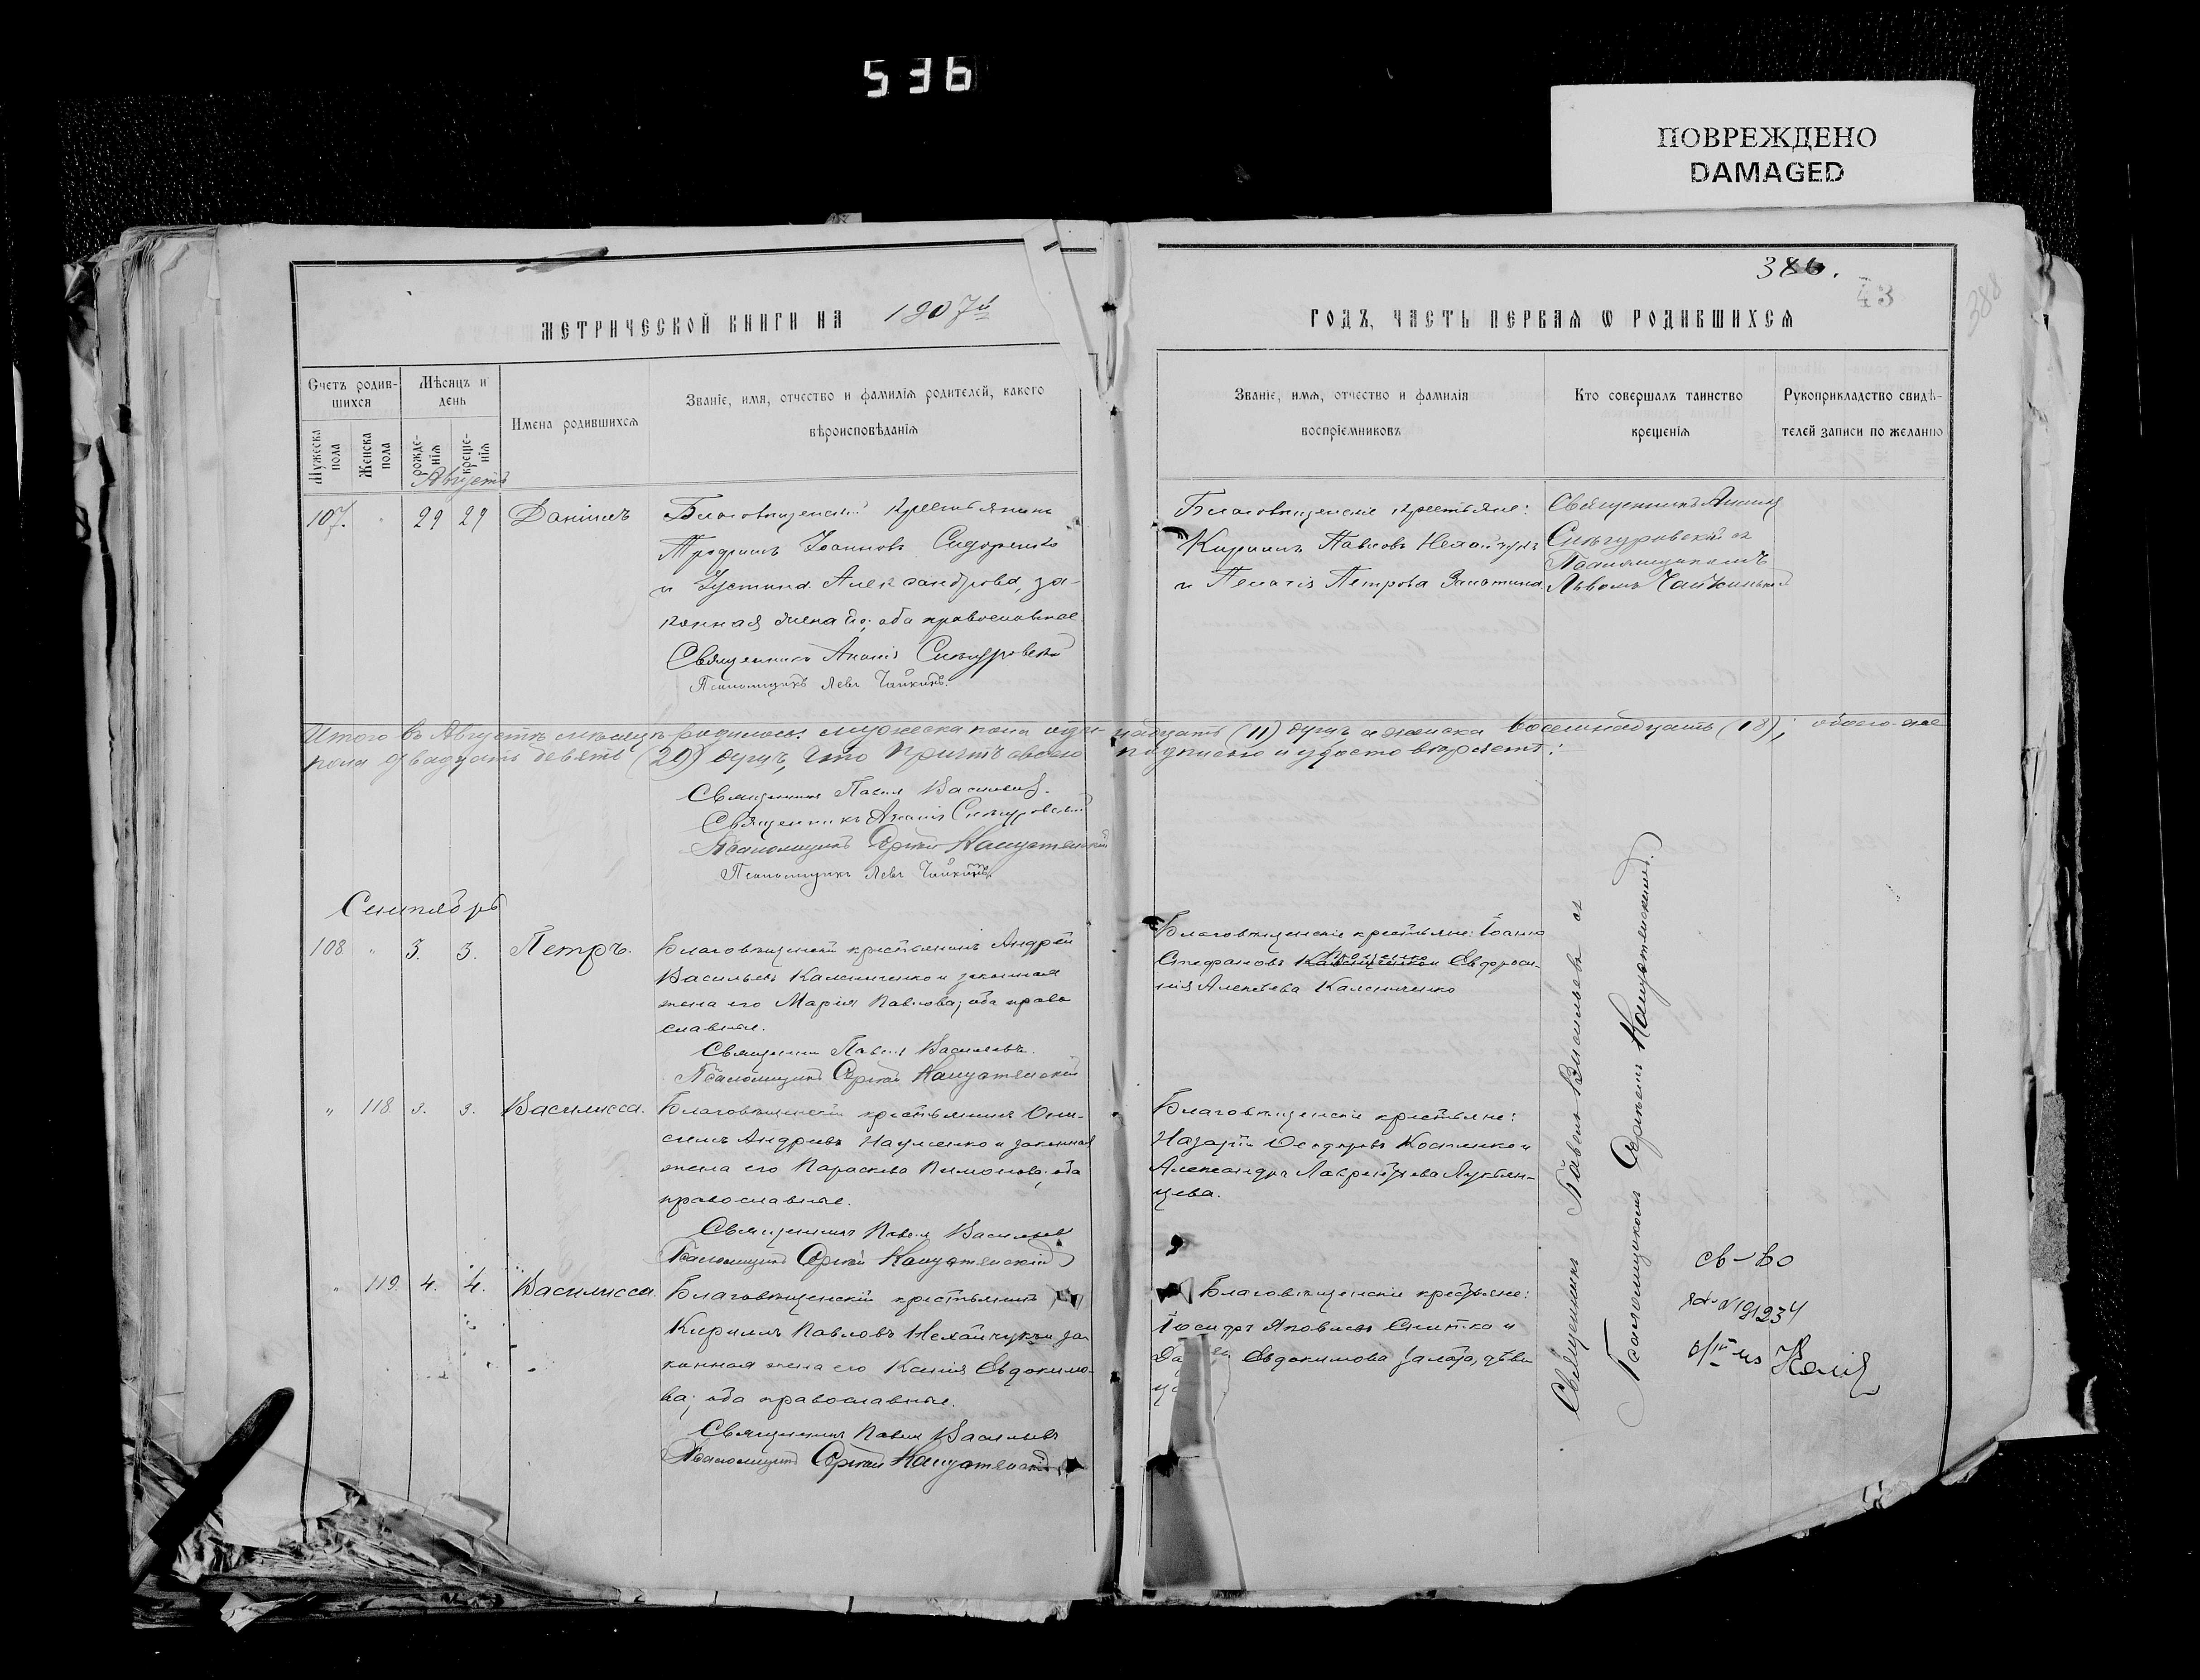 536
ПОВРЕЖДЕНО
DAMAGED
386.
43
388
МЕТРИЧЕСКОЙ КНИГИ НА 1907й
ГОДЪ, ЧАСТЬ ПЕРВАЯ Ѡ РОДИВШИХСЯ
Счетъ родив-
шихся
Мужеска пола
Женска пола
Мѣсяцъ и день
рожде-
нія
креще-
нія
Имена родившихся
Званіе, имя, отчество и фамилія родителей, какого
вѣроисповѣданія
Званіе, имя, отчество и фамилія
воспріемниковъ
Кто совершалъ таинство
крещенія
Рукоприкладство свидѣ-
телей записи по желанію
Августъ
107. " 29 29 Даніилъ
Благовѣщенскій крестьянинъ
Трофимъ Іоанновъ Сидоренко
и Іустина Александрова, за-
конная жена его; оба православные.
Священникъ Ананія Синьгуровскій
Псаломщикъ Левъ Чайкинъ.
Благовѣщенскіе крестьяне:
Кириллъ Павловъ Нехайчукъ
и Пелагія Петрова
Священникъ Ананія
Синьгуровскій съ
Псаломщикомъ
Львомъ Чайкинымъ
Итого въ Августѣ мѣсяцѣ родилось: мужеска пола один-надцать (11) душъ а женска восемнадцать (18); обоего-же
пола двадцать девять (29) душъ, что причтъ своею подписью и удостовѣряетъ:
Священникъ Павелъ Васильевъ.
Священникъ Ананія Синьгуровскій
Псаломщикъ Сергѣй Капустянскій
Псаломщикъ Левъ Чайкинъ.
Сентябрь
108 " 3. 3. Петръ.
Благовѣщенскій крестьянинъ Андрей
Васильевъ Калениченко и законная
жена его Марія Павлова; оба право
славные.
Священникъ Павелъ Васильевъ.
Псаломщикъ Сергѣй Капустянскій
Благовѣщенскіе крестьяне: Іоаннъ
Стефановъ и Евфроси-
нія Алексѣева Калениченко
" 118. 3. 3. Василисса.
Благовѣщенскій крестьянинъ Они-
симъ Андреевъ Науменко и законная
жена его Параскева Пимонова; оба
православные.
Священникъ Павелъ Васильевъ
Псаломщикъ Сергѣй Капустянскій
Благовѣщенскіе крестьяне:
Назарій Костенко и
Александра Лаврентьева Лукьян-
цева.
" 119. 4. 4. Василисса.
Благовѣщенскій крестьянинъ
Кириллъ Павловъ Нехайчукъ и за
конная жена его Ксенія Евдокимо-
ва; оба православные.
Священникъ Павелъ Васильевъ
Псаломщикъ Сергѣй Капустянскій
Благовѣщенскіе крестьяне:
Іосифъ Яковлевъ и
Евдокимова дѣви
Священникъ Павелъ Васильевъ съ
Псаломщикомъ Сергѣемъ Капустянскимъ.
св-во